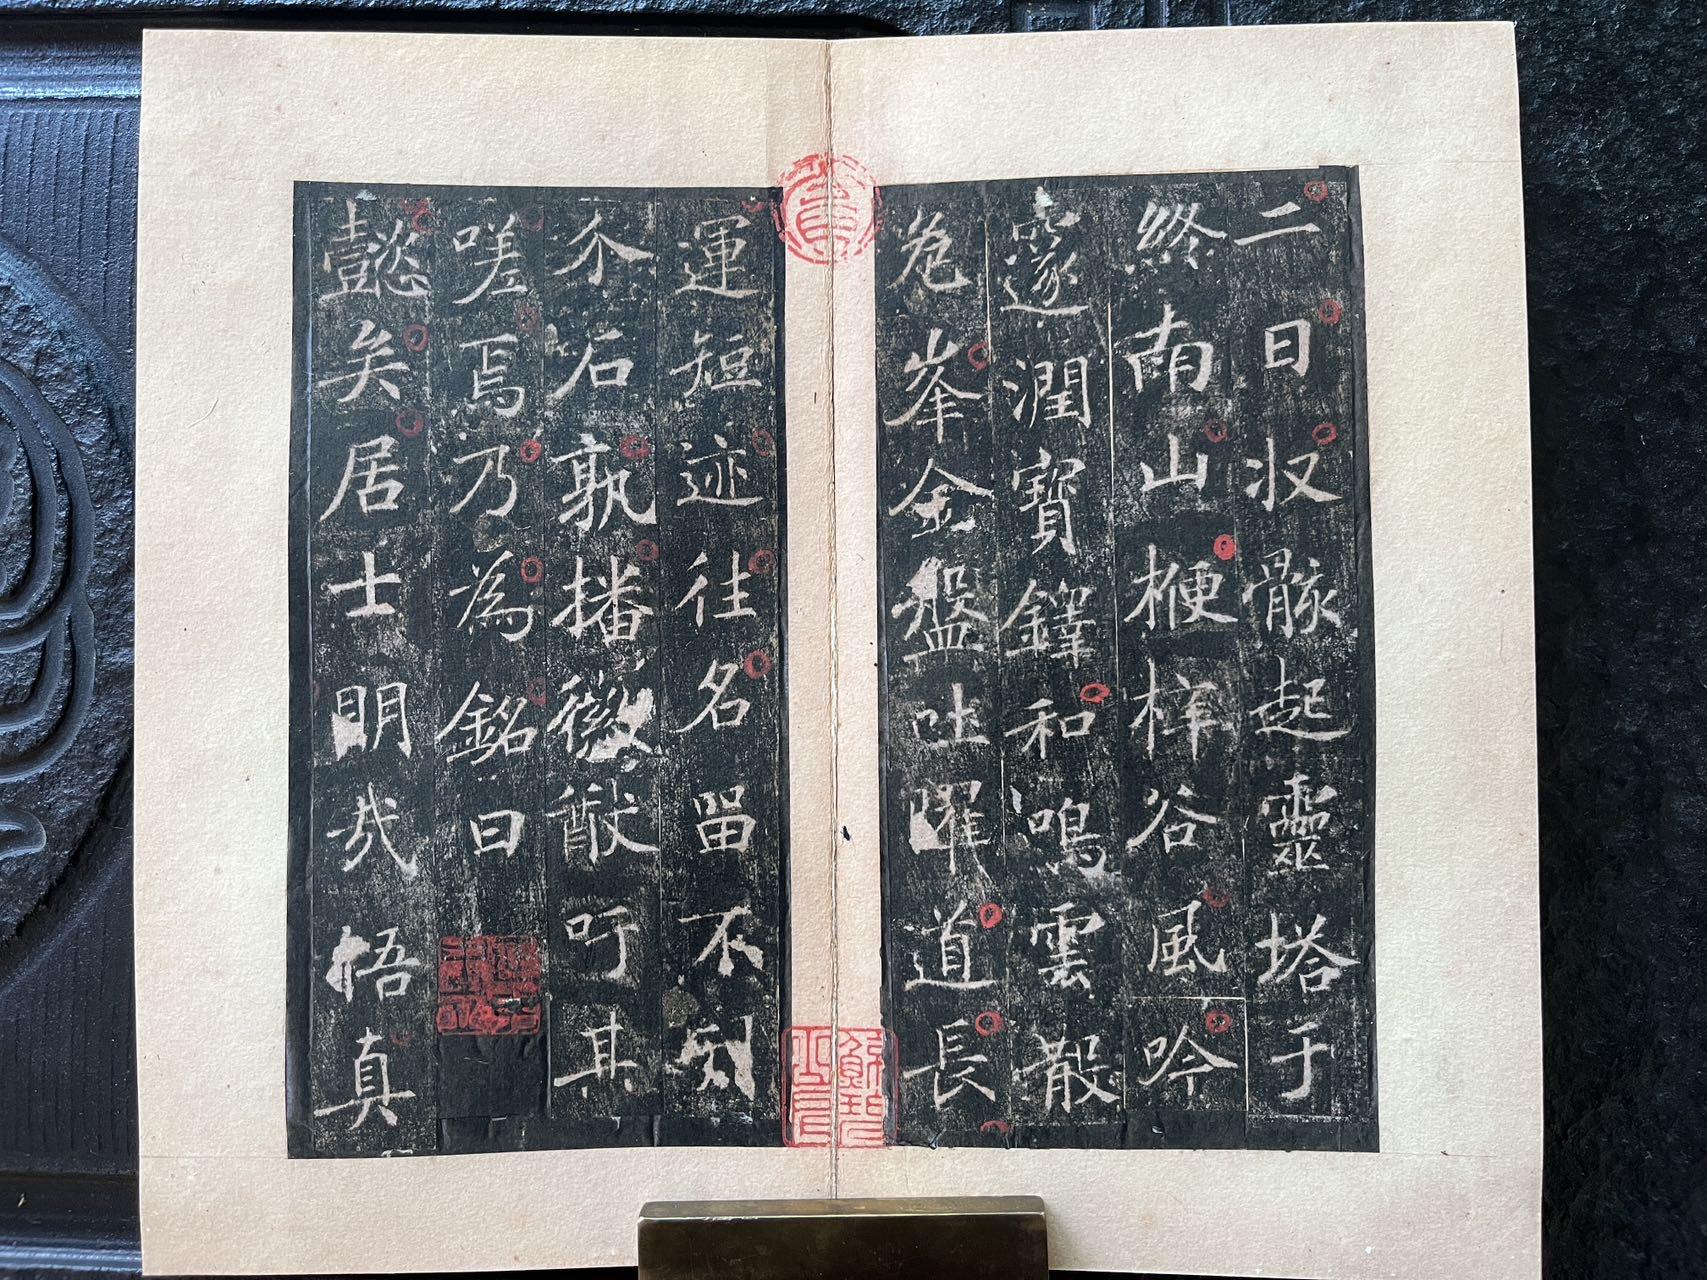 二日収骸起靈塔于
終南山楩梓谷風吟
邃澗寶鐸和鳴雲散
危峯金盤吐曜道長
運短迹往名留不刻
介石孰播徽猷吁其
嗟焉乃為銘曰
懿矣居士明哉悟真